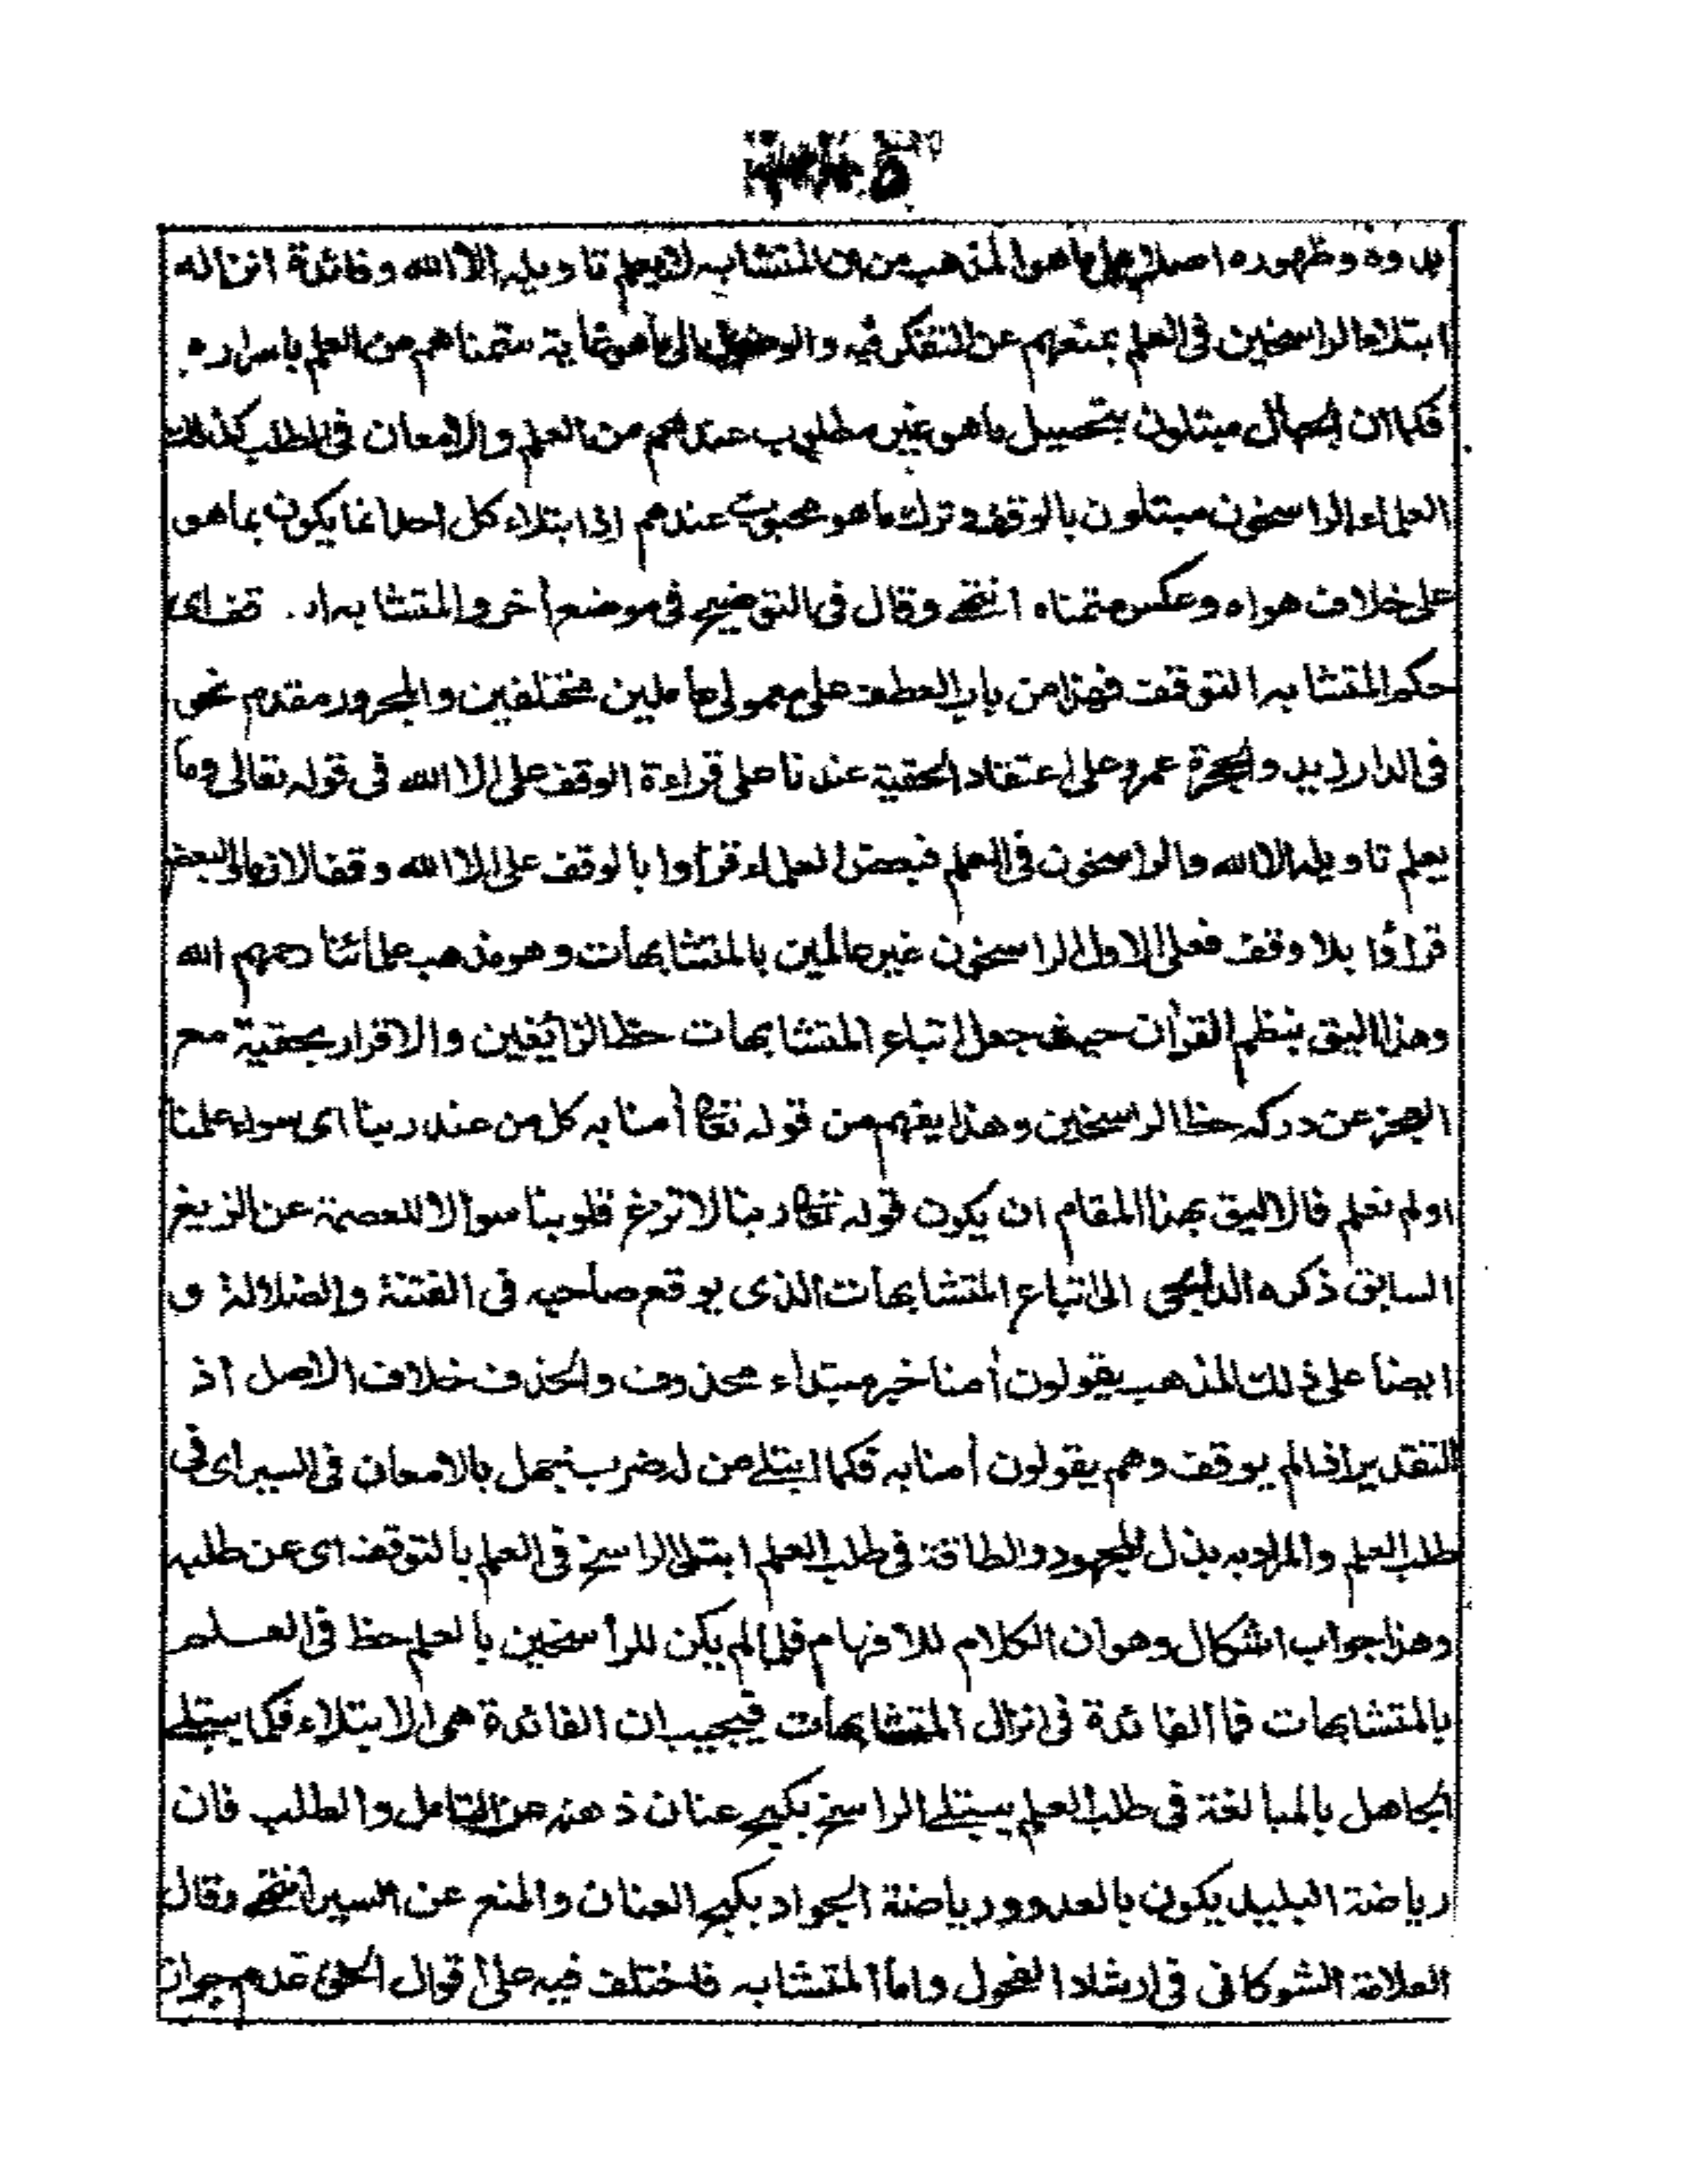 بدوه وظهوره اصلا على ما هو المذهب من ان المتشابه لا يعلم تاويله الا الله وفائدة انزاله
ابتلاء الراسخين فى العلم بمنعهم عن التفكر فيه والوصول الى ما هو غاية متمناهم من العلم باسراره
فكما ان الجهال مبتلون بتحصيل ما هو غير مطلوب عندهم من العلم والامعان فى الطلب كذلك
العلماء الراسخون مبتلون بالوقف وترك ما هو محبوب عندهم اذ ابتلاء كل احد انما يكون بما هو
على خلاف هواه وعكس متمناه انتهى وقال فى التوضيح فى موضع أخر والمتشابه اى
حكم المتشابه التوقف فهذا من باب العطف على معمولى عاملين مختلفين والمجرور مقدم نحو
فى الدار زيد والحجرة عمرو على اعتقاد الحقية عندنا على قراءة الوقف على الا الله فى قوله تعالى وما
يعلم تاويله الا الله والراسخون فى العلم فبعض العلماء قرأوا بالوقف على الا الله وقفا لازما والبعض
قرأوا بلا وقف فعلى الاول الراسخون غير عالمين بالمتشابهات وهو مذهب علمائنا رحمهم الله
وهذا اليق بنظم القرأن حيث جعل اتباع المتشابهات حظ الزائغين والاقرار بحقية مع
العجز عن دركه حظ الراسخين وهذا يفهم من قوله تعالى أمنا به كل من عند ربنا اى سواء علمنا
اولم نعلم فالاليق بهذا المقام ان يكون قوله تعالى ربنا لا تزغ قلوبنا سوالا للعصمة عن الزيغ
السابق ذكره الداعى الى اتباع المتشابهات الذى يوقع صاحبه فى الفتنة والضلالة و
ايضا على ذلك المذهب يقولون أمنا خبر مبتداء محذوف والحذف خلاف الاصل اذ
التقدير اذا لم يوقف وهم يقولون أمنا به فكما ابتلى من له ضرب جهل بالامعان فى السير اى فى
طلب العلم والمراد به بذل المجهود والطاقة فى طلب العلم ابتلى الراسخ فى العلم بالتوقف اى عن طلبه
وهذا جواب اشكال وهو ان الكلام للافهام فلما لم يكن للراسخين بالعلم حظ فى العلم
بالمتشابهات فما الفائدة فى انزال المتشابهات فيجيب ان الفائدة هى الابتلاء فكما يبتلى
الجاهل بالمبالغة فى طلب العلم يبتلى الراسخ بكبح عنان ذهنه عن التامل والطلب فان
رياضة البليد يكون بالعدو ورياضة الجواد بكبح العنان والمنع عن السير انتهى وقال
العلامة الشوكانى فى ارشاد الفحول واما المتشابه فاختلف فيه على اقوال الحق عدم جواز